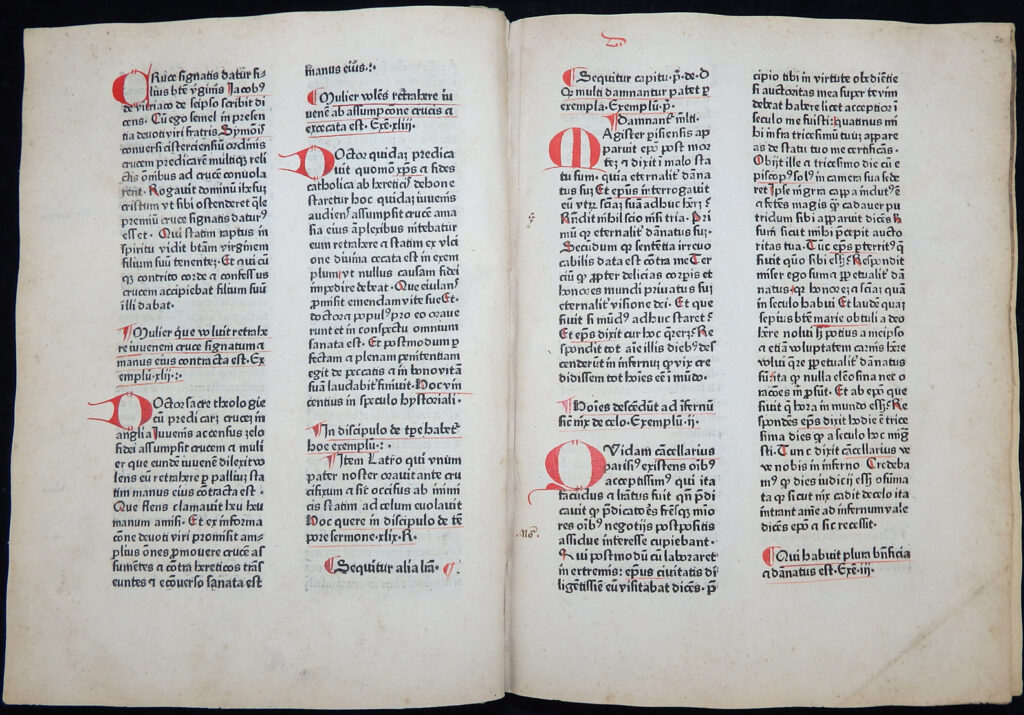 CRuce signatis datur fi-
lius bt̄e v̄ginis Jacob⁹
de vitriaco de seipso scribit di
cens. Cū ego semel in presen
tia deuoti viri fratris Symōis
conuersi cisterciensiū ordinis
crucem predicarē multiq; reli
ctis om̄ibus ad crucē conuola
rent. Rogauit dominū ihesuꝫ
cristum vt sibi ostenderet q̄le
premiū cruce signatis datur⁹
esset. Qui statim raptus in
spiritu vidit bt̄am virginem
filium suū tenenteꝫ. Et qui cū
q; contrito corde a confessus
crucem accipiebat filium suū
illi dabat.
Mulier que voluit retrahe
re iuuenem cruce signatum a
manus eius contracta est. Ex
emplū. xlij.:
DOctor sacre theologie
cū predicarꝫ cruceꝫ in
anglia Juuenis accensus zelo
fidei assumpsit crucem a muli
er que eunde iuuenē dilexit vo
lens eū retrahere ꝑ palliuꝫ sta
tim manus eius cōtracta est.
Que flens clamauit heu heu
manum amisi. Et ex informa
cōne deuoti viri promisit am-
plius ōnes ꝓmouere crucē as
sumētes a contra hereticos trās
euntes a ecōuerso sanata est
manus eius.:.
Mulier volēs retrahere iu
uenē ab assumpcōne crucis a
excecata est. Exē. xliij.
DOctor quidaꝫ predica
uit quomō xp̄s a fides
catholica ab hereticꝭ dehone
staretur hoc quidaꝫ iuuenis
audienˢ assumpsit crucē ama
sia eius āplexibus nitebatur
eum retrahere a statim ex vlci
one diuina cecata est in exem
plum vt nullus causam fidei
impedire debeat. Que eiulanˢ
ꝓmisit emendam vite sue Et
doctor a popul⁹ pro eo oraue
runt et in conspectu omnium
sanata est. Et postmodum ꝑ
fectam a plenam penitentiam
egit de peccatis a in bono vitā
suā laudabilꝭ finiuit. Hoc vin
centius in speculo hystoriali.
In discipulo de tp̄e habet̄
hoc exemplū.:.
Item Latro qui vnum
pater noster orauit ante cru
cifixum a sic occisus ab inimi
cis statim ad celum euolauit
Hoc quere in discipulo de tē
pore sermone. xlix. R.
Sequitur alia lr̄a.
D
20
Sequitur capitu. p̄. de. D
Q multi damnantur patet ꝑ
exempla. Exemplū. p̄.
Damnant̄ ml̄ti.
MAgister ꝑisiensis ap
paruit epō post mor
teꝫ a dixit in malo sta
tu sum. quia eternalit̄ dāna
tus suꝫ Et ep̄us interrogauit
eū vtrꝫ sciaꝫ suā adhuc hērꝫ
Rn̄dit nihil scio nisi tria. Pri
mū ꝙ eternalit̄ dānatus suꝫ.
Secūdum ꝙ sentētia irreuo
cabilis data est cōtra me Ter
ciū ꝙ ꝓpter delicias corꝑis et
honores mundi priuatus suꝫ
eternalit̄ visione dei. Et que
siuit si mūd⁹ adhuc staret
Et ep̄s dixit cur hoc q̄rerꝫ Re
spondit tot aīe illis dieb⁹ des
cenderunt in infernū ꝙ vix cre
didissem tot hoīes eē ī mūdo.
Hoīes descēdūt ad īfernū
sic nix de celo. Exemplū. ij.
QVidam cācellarius
parisiꝰ existens oībꝰ
acceptissim⁹ qui ita
facūdus a lr̄atus fuit q̄n p̄di
cauit ꝙ p̄dicatoēs frēsq; mīo
res oībꝰ negotijs postpositis
assidue interesse cupiebant.
Qui postmodū cū laboraret
in extremis: ep̄us ciuitatis di
ligētissīe eū visitabat dicēs. p̄
cipio tibi in virtute obedietie
si auctoritas mea super te vim
debeat habere licet acceptior ī
seculo me fuisti: quatinus mi
hi infra tricesimū tuū appare
as de statu tuo me certificās.
Obijt ille a tricesimo die cū e
piscop⁹ sol⁹ in camera sua sede
ret Ipse nigra cappa indut⁹ ē
a fetēs magis q̄ cadauer pu
tridum sibi apparuit dicēs
sum sicut mihi p̄cepit aucto
ritas tua. Tūc ep̄s ꝑterrit⁹ q̄
siuit quo sibi essꝫ. Respondit
miser ego sum a ꝑpetualit̄ dā
natus: ꝙ honoreꝫ a scīaꝫ quā
in seculo habui Et laudē quaꝫ
sepius btē marie obtuli a deo
hēre nolui potius a meipso
a etiā voluptatem carnis mee
volui que ꝑpetualit̄ dānatus
suꝫ: ita ꝙ nulla elēosina nec o
racōes mī ꝓsūt. Et ab epō que
siuit q̄ hora in mundo essꝫ. Re
spondēs ep̄s dixit hodie ē trice
sima dies ꝙ a seculo hoc mig̃
sti. Tunc dixit cācellarius ve
ve nobis in inferno Credeba
m⁹ ꝙ dies iudicij essꝫ ꝯsūma
ta ꝙ sicut nix cadit de celo ita
intrant aīe ad infernum vale
dicēs epō a sic recessit.
Qui habuit plura bn̄ficia
a dānatus est. Exē. iij.